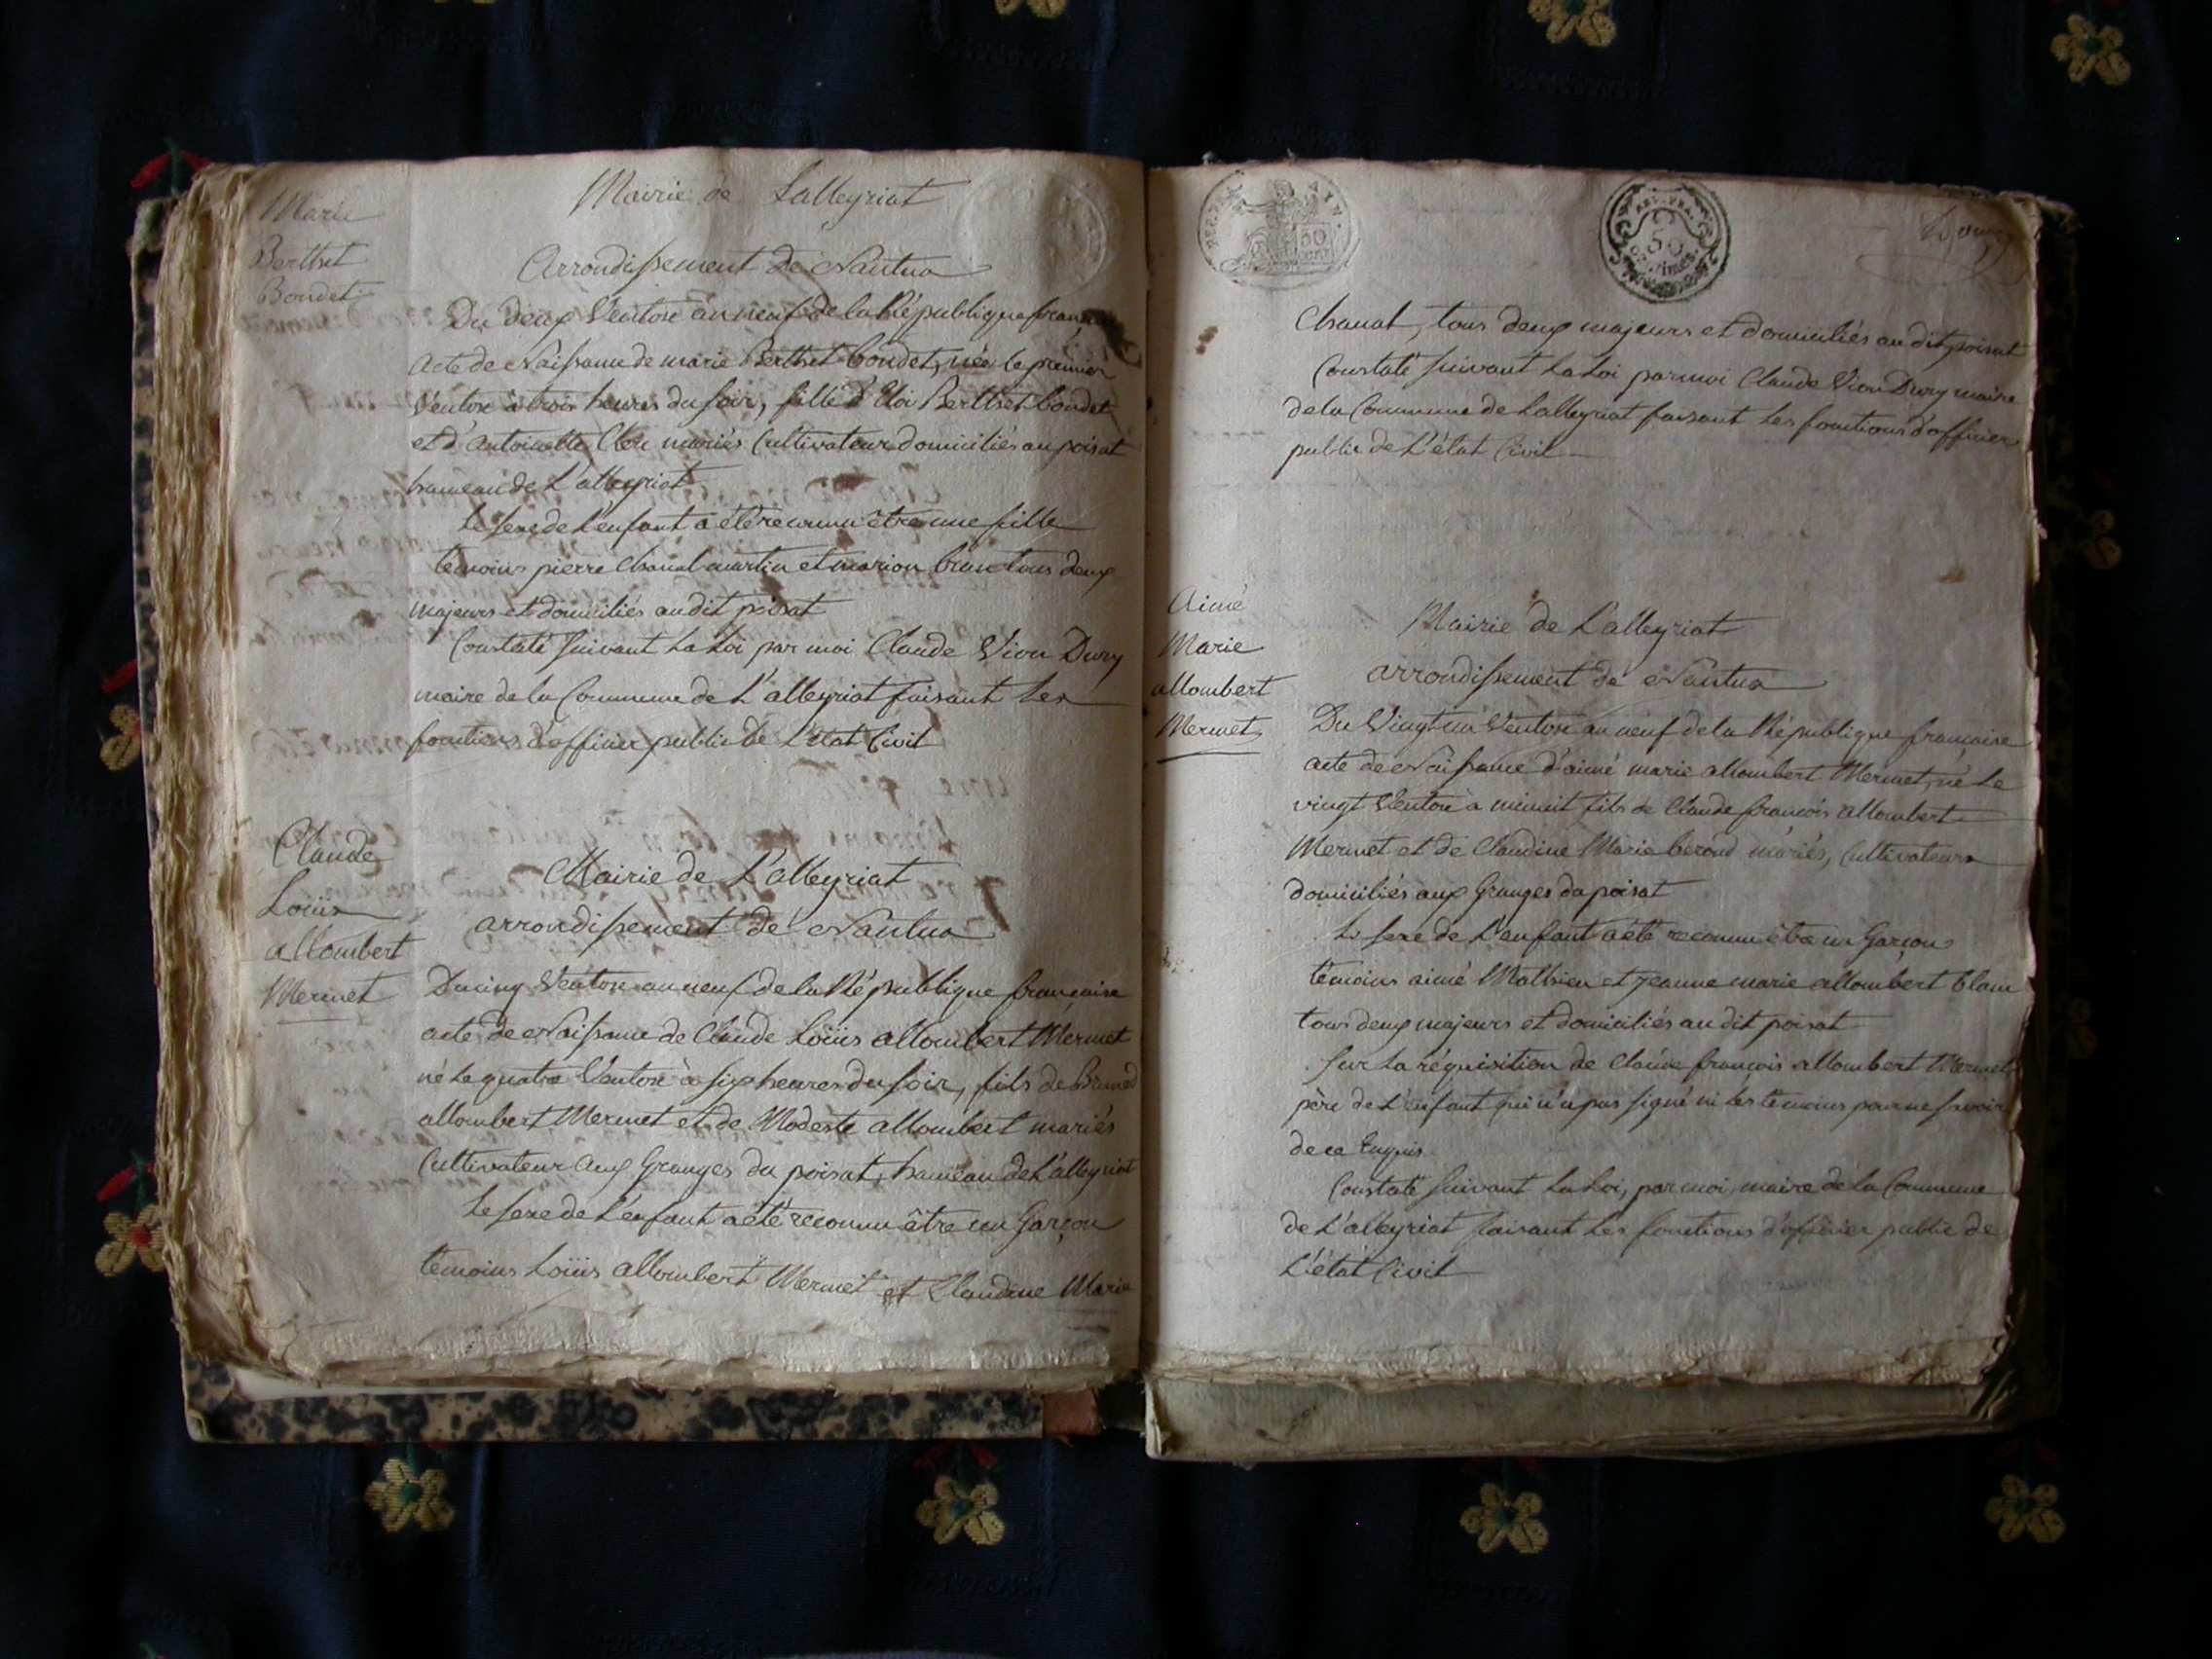 Marie
Berthet
Bondet
Mairie de Lalleyriat
Arrondissement de Nantua
Du deux Ventose an neuf de la République française
acte de Naissance de marie Berthet bondet, née le premier
Ventose à trois heures du soir, fille d'Eloi Berthet bondet
et d'antoinette mariés Cultivateurs domiciliés au poisat
hameau de L'alleyriat
Le sexe de L'enfant a été reconnu être une fille
témoins pierre Chanal martin et marion tous deux
majeurs et domiciliés au dit poisat
Constaté suivant La Loi par moi Claude Vion Dury
maire de la Commune de L'alleyriat faisant Les
fonctions d'officier public de L'état Civil
Claude
Loüis
allombert
Mermet
Mairie de L'alleyriat
arrondissement de Nantua
Du cinq Ventose an neuf de la République française
acte de Naissance de Claude Loüis allombert Mermet
né Le quatre Ventose à six heures du soir, fils de
allombert Mermet et de Modeste allombert mariés
Cultivateur aux Granges du poisat, hameau de L'alleyriat
Le sexe de L'enfant a été reconnu être un Garçon
témoins Loüis allombert Mermet et Claudine Marie
REP. FRA.
50
CENT.
REP. FRA.
50
Centimes
Chanal, tous deux majeurs et domiciliés au dit poisat
Constaté suivant La Loi par moi Claude Vion Dury maire
de la Commune de Lalleyriat faisant Les fonctions d'officier
public de L'état Civil
Aimé
Marie
allombert
Mermet
Mairie de L'alleyriat
arrondissement de Nantua
Du Vingt un Ventose an neuf de la République française
acte de Naissance d'aimé marie allombert Mermet, né Le
vingt Ventose a minuit fils de Claude françois allombert
Mermet et de Claudine Marie beroud mariés, Cultivateurs
domiciliés aux Granges du poisat
Le sexe de L'enfant a été reconnu être un Garçon
témoins aimé Mathieu et jeanne marie allombert blanc
tous deux majeurs et domiciliés au dit poisat
Sur La réquisition de Claude françois allombert Mermet
père de L'enfant qui n'a pas signé ni Les témoins pour ne savoir
de ce Enquis
Constaté suivant La Loi, par moi, maire de la Commune
de L'alleyriat faisant Les fonctions d'officier public de
L'état Civil